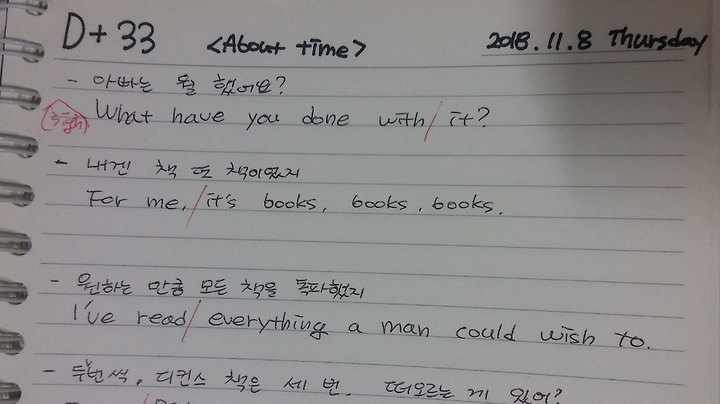 D+33 <About time> 2018.11.8 Thursday
- 아빠는 뭘 했어요?
What have you done with/ it?
- 내겐 책 또 책이었지
For me,/it's books, books, books.
- 원하는 만큼 모든 책을 독파했지
I've read/ everything a man could wish to.
- 두번씩, 디킨스 책은 세 번. 떠오르는 게 있어?